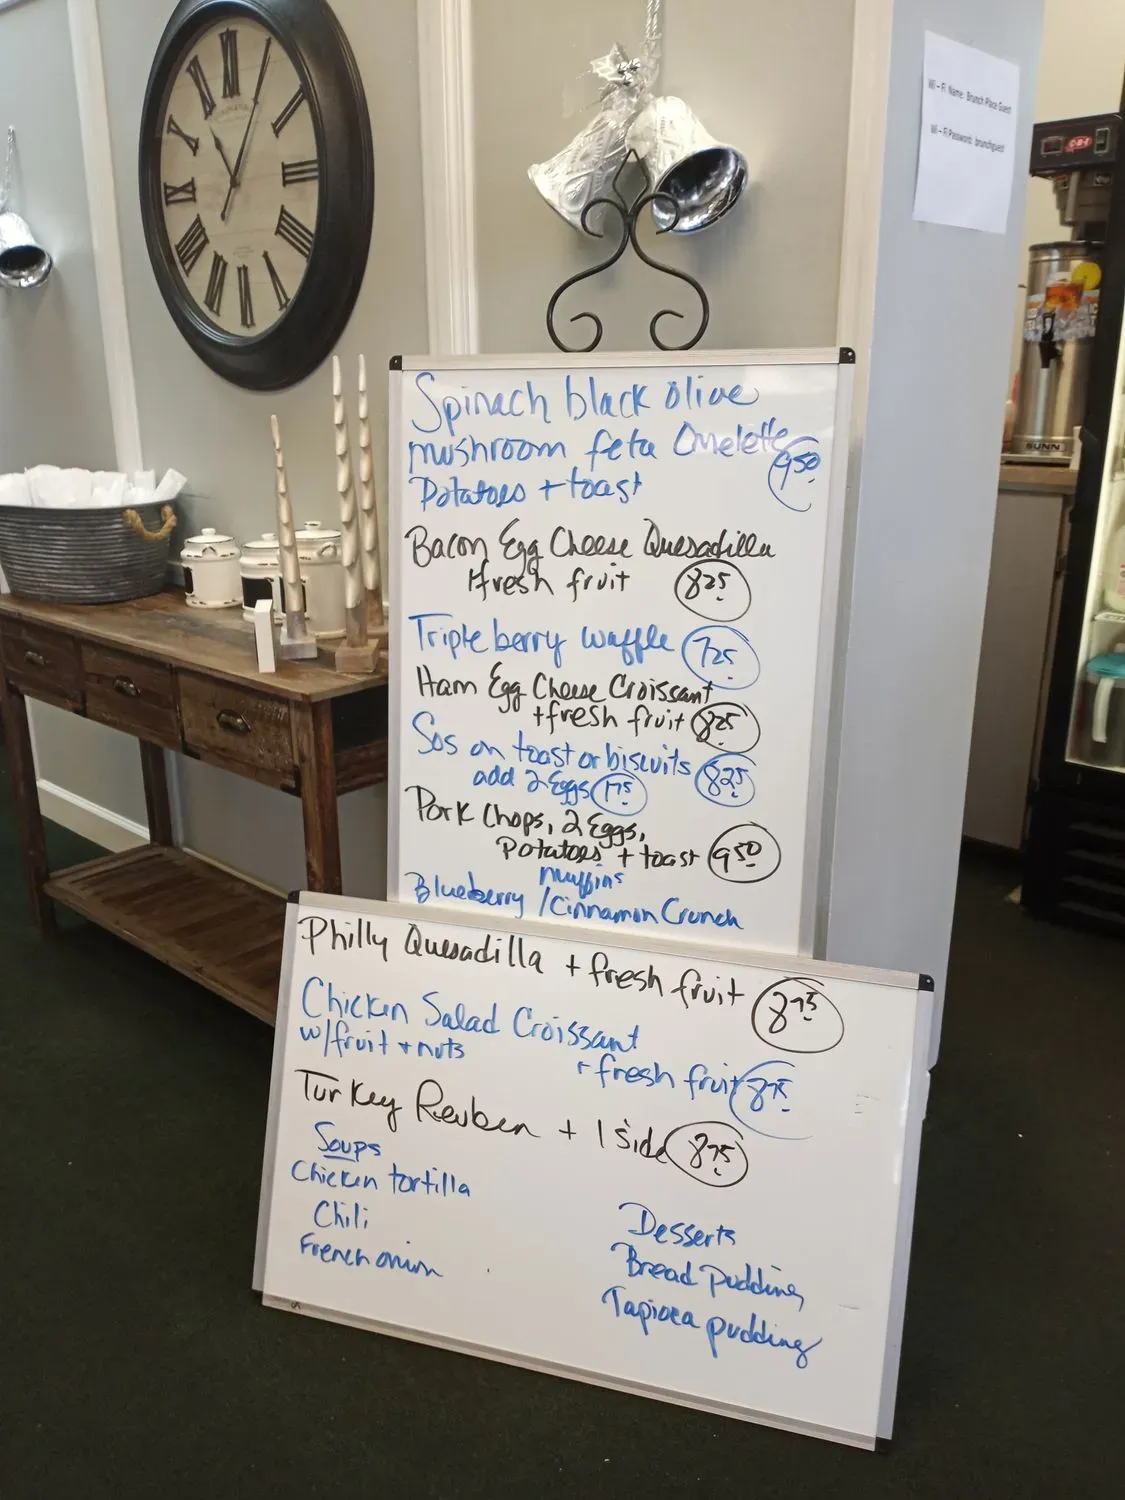 Wi-Fi Name: Brunch Place Guest
Wi-Fi Password: brunchguest
BUNN
Spinach black olive
mushroom feta Omelette 9.50
Potatoes + toast
Bacon Egg Cheese Quesadilla
+fresh fruit 8.25
Triple berry waffle 7.25
Ham Egg Cheese Croissant
+fresh fruit 8.25
Sos on toast or biscuits 8.25
add 2 Eggs 1.75
Pork Chops, 2 Eggs,
Potatoes + toast 9.50
muffins
Blueberry / Cinnamon Crunch
Philly Quesadilla + fresh fruit 8.75
Chicken Salad Croissant
w/fruit + nuts + fresh fruit 8.75
Turkey Reuben + 1 side 8.75
Soups
Chicken tortilla
Chili
French onion
Desserts
Bread pudding
Tapioca pudding